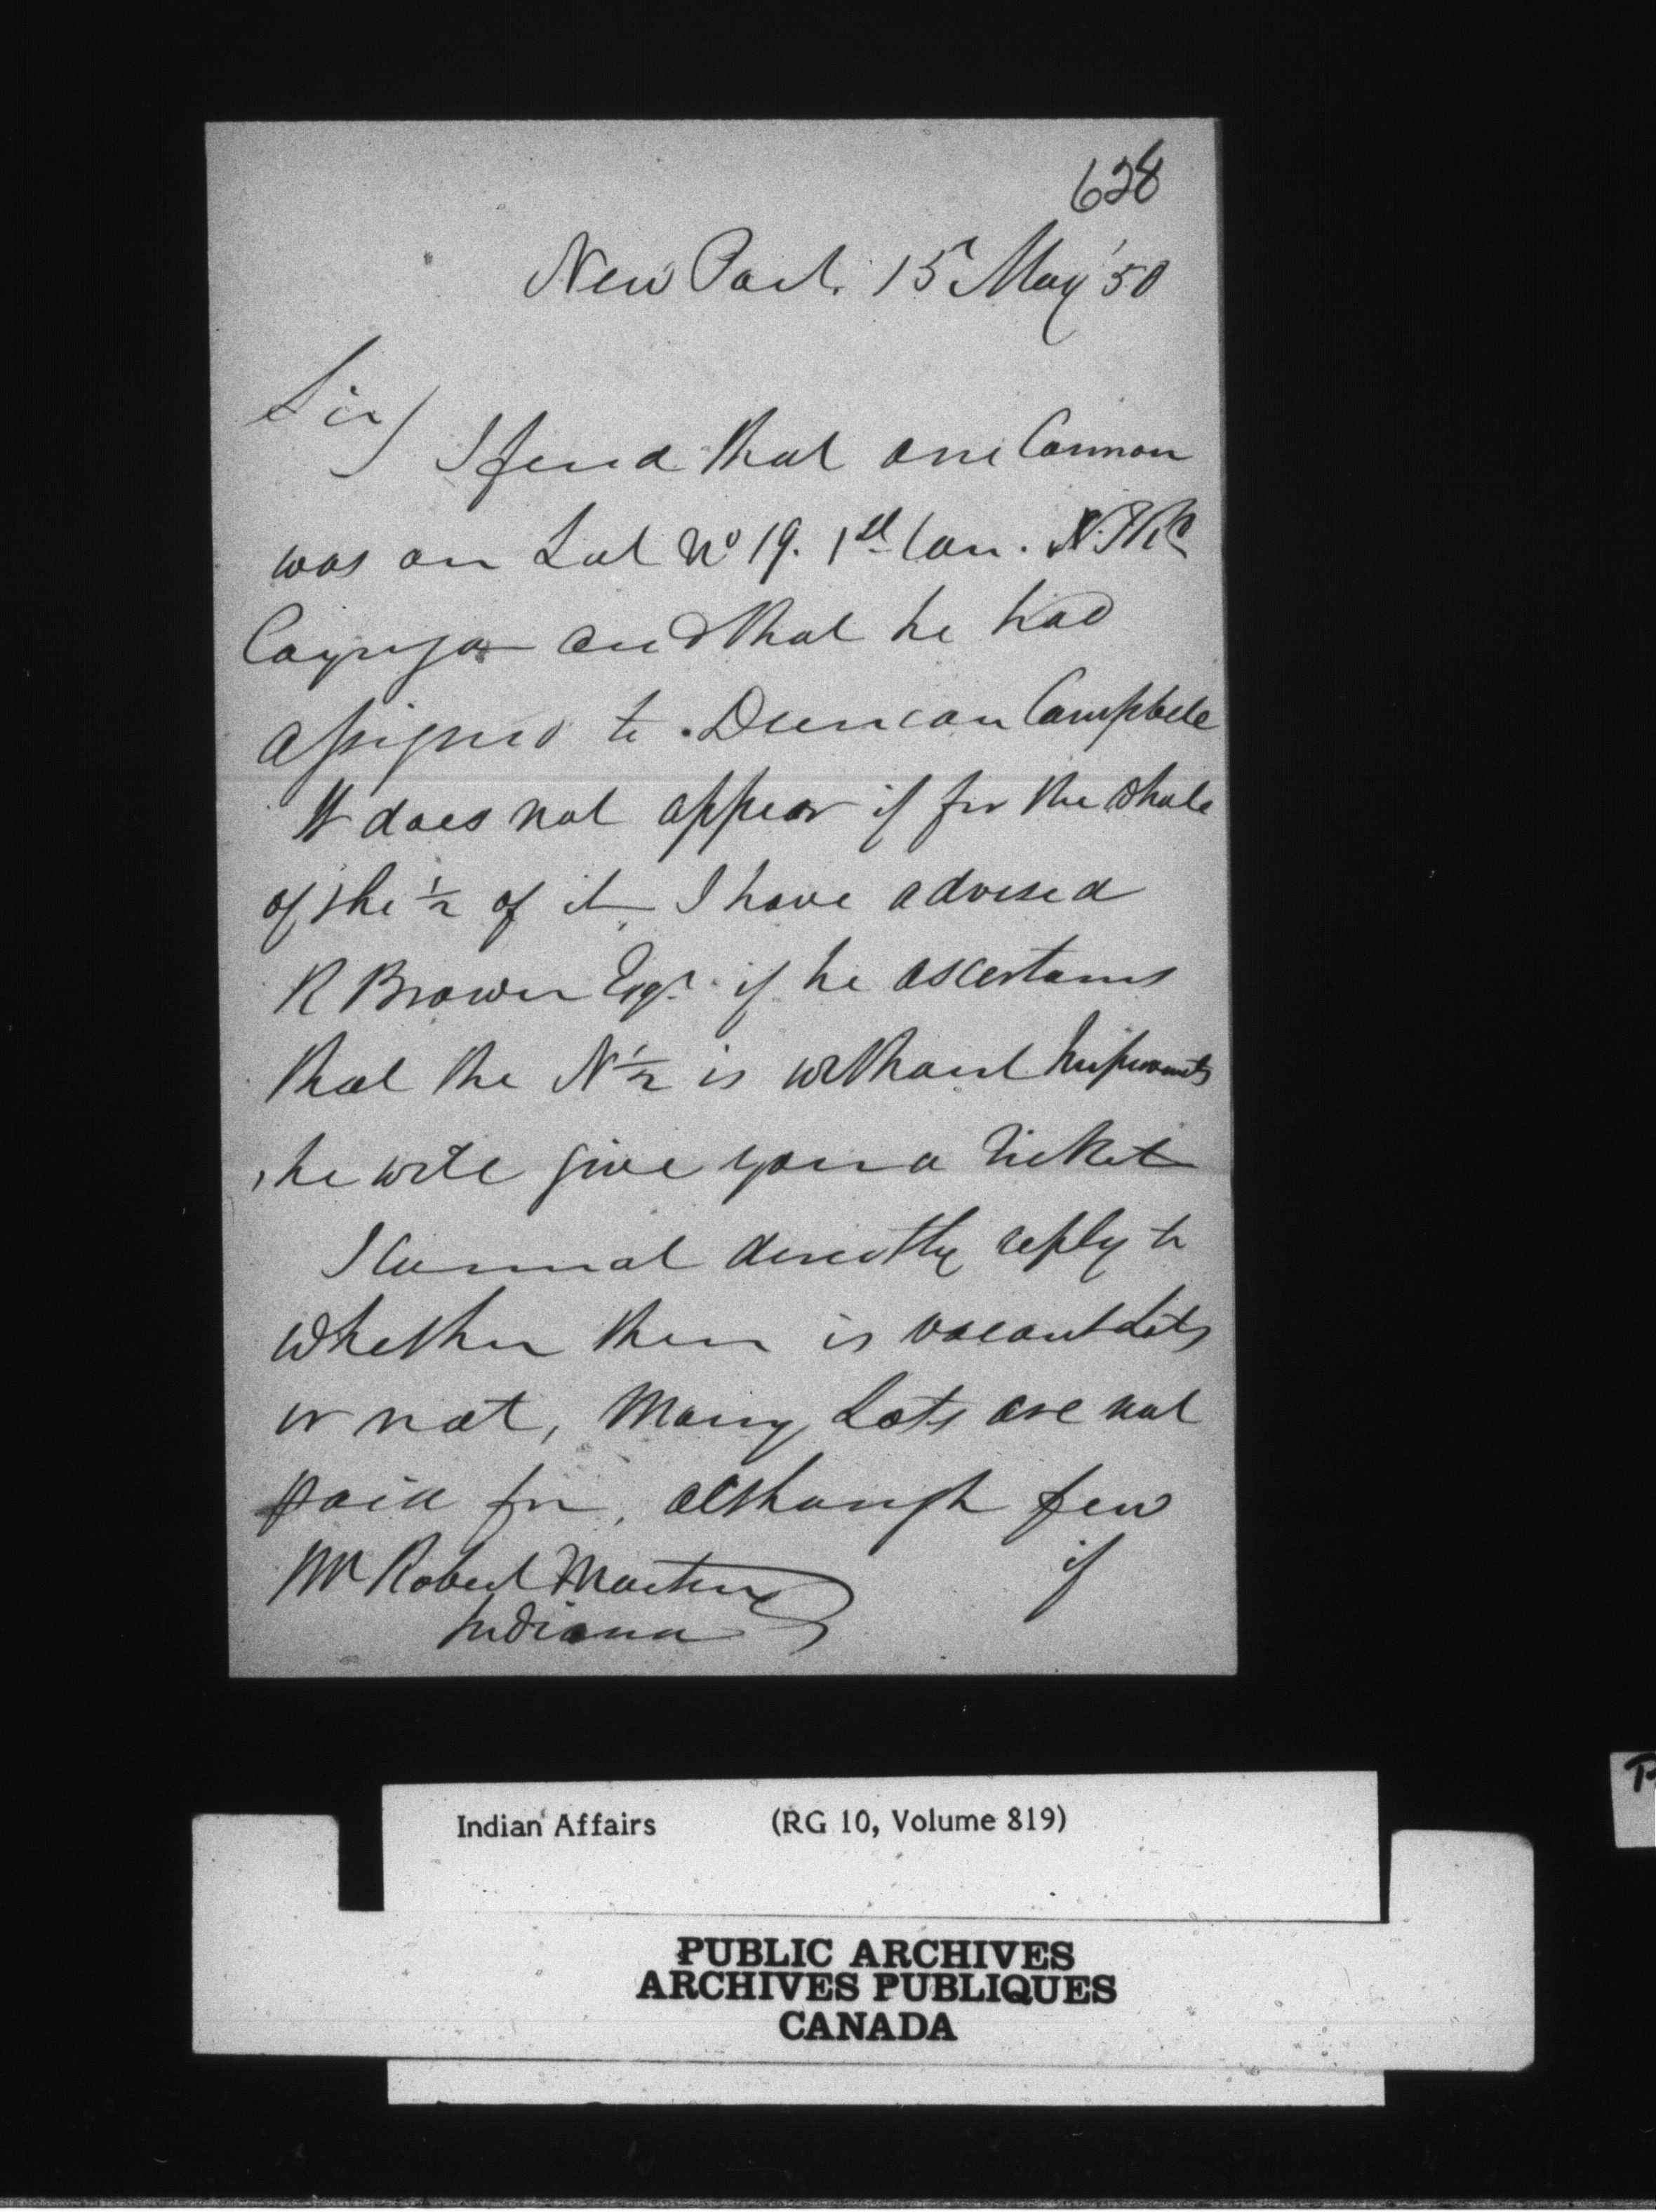 628
New Port. 15 May '50
Sir/
I find that one Cannon
was on Lot No 19. 1st Con. N.T.R.
Cayuga and that he had
assigned to Duncan Campbell
It does not appear if for the whole
of the ½ of it I have advised
R Brown Esqr. if he ascertains
that the N ½ is without Improvmts
he will give you a Ticket
I cannot directly reply to
whether there is vacant Lots
or not, Many Lots are not
paid for, although few
if
Mr Robert Martin
Indiana
Indian Affairs (RG 10, Volume 819)
PUBLIC ARCHIVES
ARCHIVES PUBLIQUES
CANADA